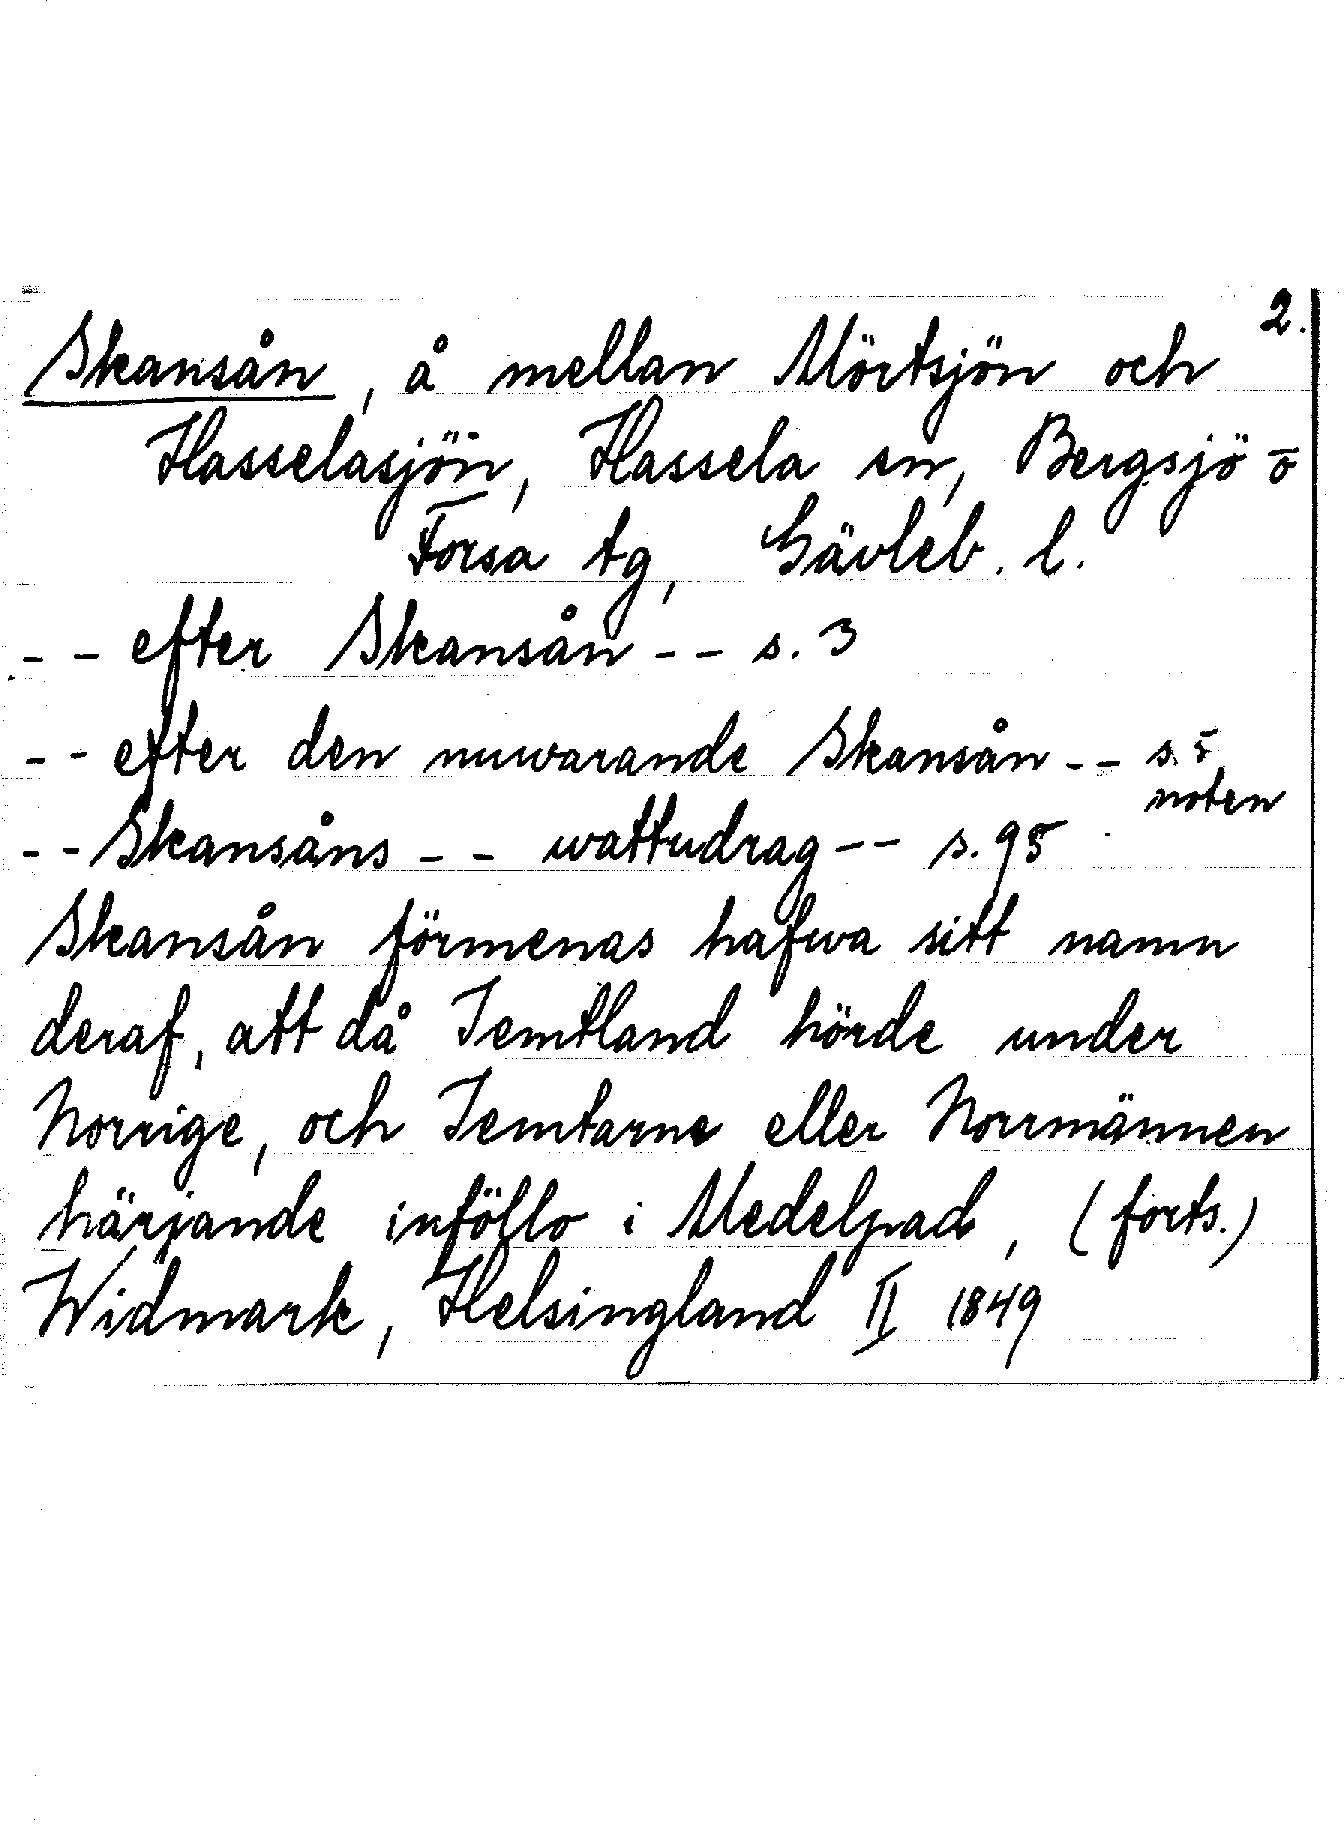 2.
Skansån, å mellan Mörtsjön och
Hasselasjön, Hassela sn, Bergsjö o
Forsa tg, Gävleb. l.
-- efter Skansån -- s. 3
-- efter den nuwarande Skansån -- s. 5
noten
-- Skansåns -- wattudrag -- s. 95
Skansån förmenas hafwa sitt namn
deraf, att då Jemtland hörde under
Norrige, och Jemtarne eller Norrmännen
härjande inföllo i Medelpad, (forts.)
Widmark, Helsingland II 1849